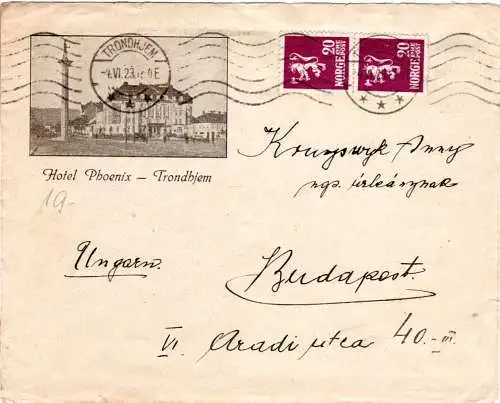 TRONDHJEM
VI.23
20 NORGE POST
20 NORGE POST
Hotel Phoenix — Trondhjem
19-
Kruyswyk Anny
ngs. úrleánynak
Ungarn.
Budapest.
VI Aradi utca 40.-III.